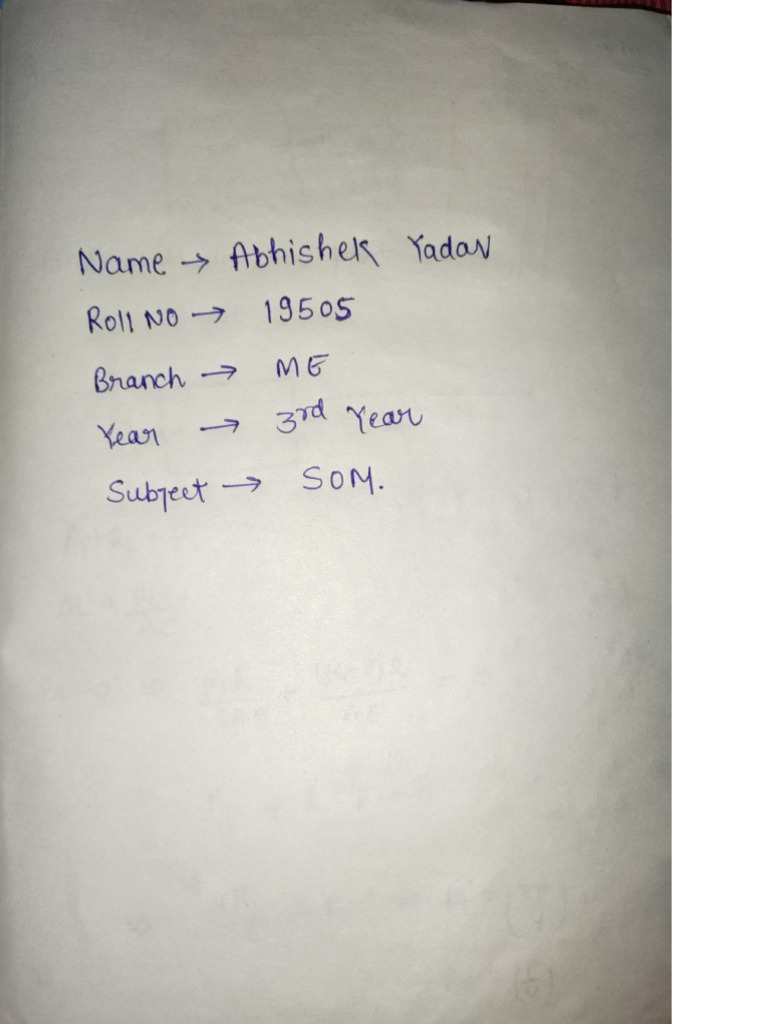 Name → Abhishek Yadav
Roll NO → 19505
Branch → ME
Year → 3rd Year
Subject → SOM.